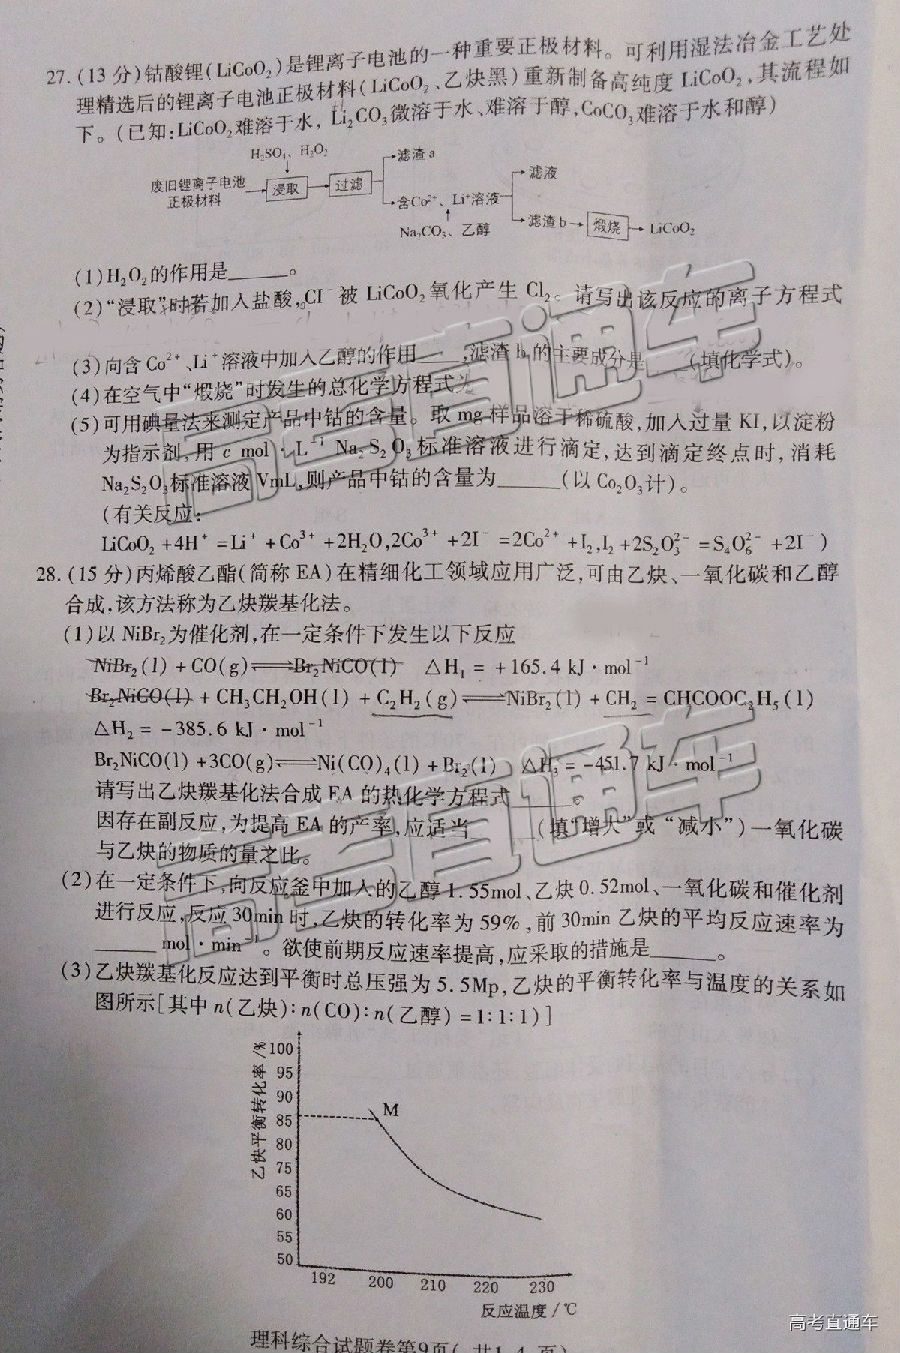 27.(13分)钴酸锂(LiCoO₂)是锂离子电池的一种重要正极材料。可利用湿法冶金工艺处
理精选后的锂离子电池正极材料(LiCoO₂、乙炔黑)重新制备高纯度LiCoO₂,其流程如
下。(已知:LiCoO₂难溶于水, Li₂CO₃微溶于水、难溶于醇,CoCO₃难溶于水和醇)
H₂SO₄、H₂O₂
滤渣a
滤液
废旧锂离子电池
正极材料
浸取
过滤
含Co²⁺、Li⁺溶液
滤渣b
煅烧
LiCoO₂
Na₂CO₃、乙醇
(1)H₂O₂的作用是_____。
(2)“浸取”时若加入盐酸,Cl⁻被LiCoO₂氧化产生Cl₂。请写出该反应的离子方程式
(3)向含Co²⁺、Li⁺溶液中加入乙醇的作用_____,滤渣b的主要成分是_____(填化学式)。
(4)在空气中“煅烧”时发生的总化学方程式为
(5)可用碘量法来测定产品中钴的含量。取mg样品溶于稀硫酸,加入过量KI,以淀粉
为指示剂,用c mol·L⁻¹ Na₂S₂O₃标准溶液进行滴定,达到滴定终点时,消耗
Na₂S₂O₃标准溶液VmL,则产品中钴的含量为_____(以Co₂O₃计)。
(有关反应:
LiCoO₂+4H⁺=Li⁺+Co³⁺+2H₂O,2Co³⁺+2I⁻=2Co²⁺+I₂,I₂+2S₂O₃²⁻=S₄O₆²⁻+2I⁻)
28.(15分)丙烯酸乙酯(简称EA)在精细化工领域应用广泛,可由乙炔、一氧化碳和乙醇
合成,该方法称为乙炔羰基化法。
(1)以NiBr₂为催化剂,在一定条件下发生以下反应
NiBr₂(l)+CO(g)⇌Br₂NiCO(l) △H₁=+165.4 kJ·mol⁻¹
Br₂NiCO(l)+CH₃CH₂OH(l)+C₂H₂(g)⇌NiBr₂(l)+CH₂=CHCOOC₂H₅(l)
△H₂=-385.6 kJ·mol⁻¹
Br₂NiCO(l)+3CO(g)⇌Ni(CO)₄(l)+Br₂(l) △H₃=-451.7 kJ·mol⁻¹
请写出乙炔羰基化法合成EA的热化学方程式_____。
因存在副反应,为提高EA的产率,应适当_____(填“增大”或“减小”)一氧化碳
与乙炔的物质的量之比。
(2)在一定条件下,向反应釜中加入的乙醇1.55mol、乙炔0.52mol、一氧化碳和催化剂
进行反应,反应30min时,乙炔的转化率为59%,前30min乙炔的平均反应速率为
_____mol·min⁻¹。欲使前期反应速率提高,应采取的措施是_____。
(3)乙炔羰基化反应达到平衡时总压强为5.5Mp,乙炔的平衡转化率与温度的关系如
图所示[其中n(乙炔):n(CO):n(乙醇)=1:1:1)]
乙炔平衡转化率/%
100
95
90
85
80
75
65
60
55
50
M
192 200 210 220 230
反应温度/℃
理科综合试题卷第9页(共14页)
高考直通车
高考直通车
高考直通车